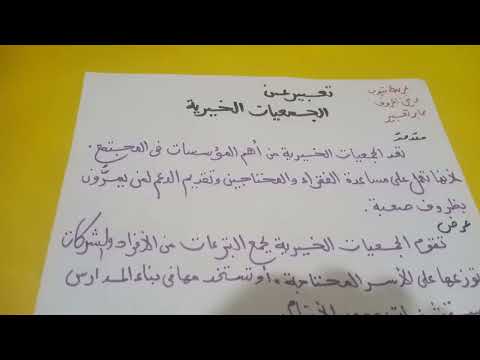 تعبير عن
الجمعيات الخيرية
مقدمة
تعد الجمعيات الخيرية من أهم المؤسسات في المجتمع.
لانها تعمل على مساعدة الفقراء والمحتاجين وتقديم الدعم لمن يمرُّون
بظروف صعبة.
عرض
تقوم الجمعيات الخيرية بجمع التبرعات من الأفراد والشركات
توزعها على للأسر المحتاجة، أو تستخدمها في بناء المدارس